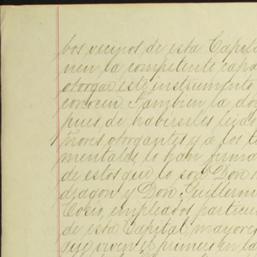 bos vecinos de esta Capital
nen la competente capa
otorgar este instrumento
conocen. Tambien la do
pues de haberseles leido
ñores otorgantes y a los t
mentales lo han firma
de estos que lo son Don
dragon y Don Guillermo
Cosio, empleados particu
de esta Capital, mayores
que viven el primero en la